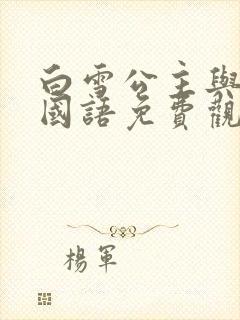 白雪公主與
國語免費觀
楊軍